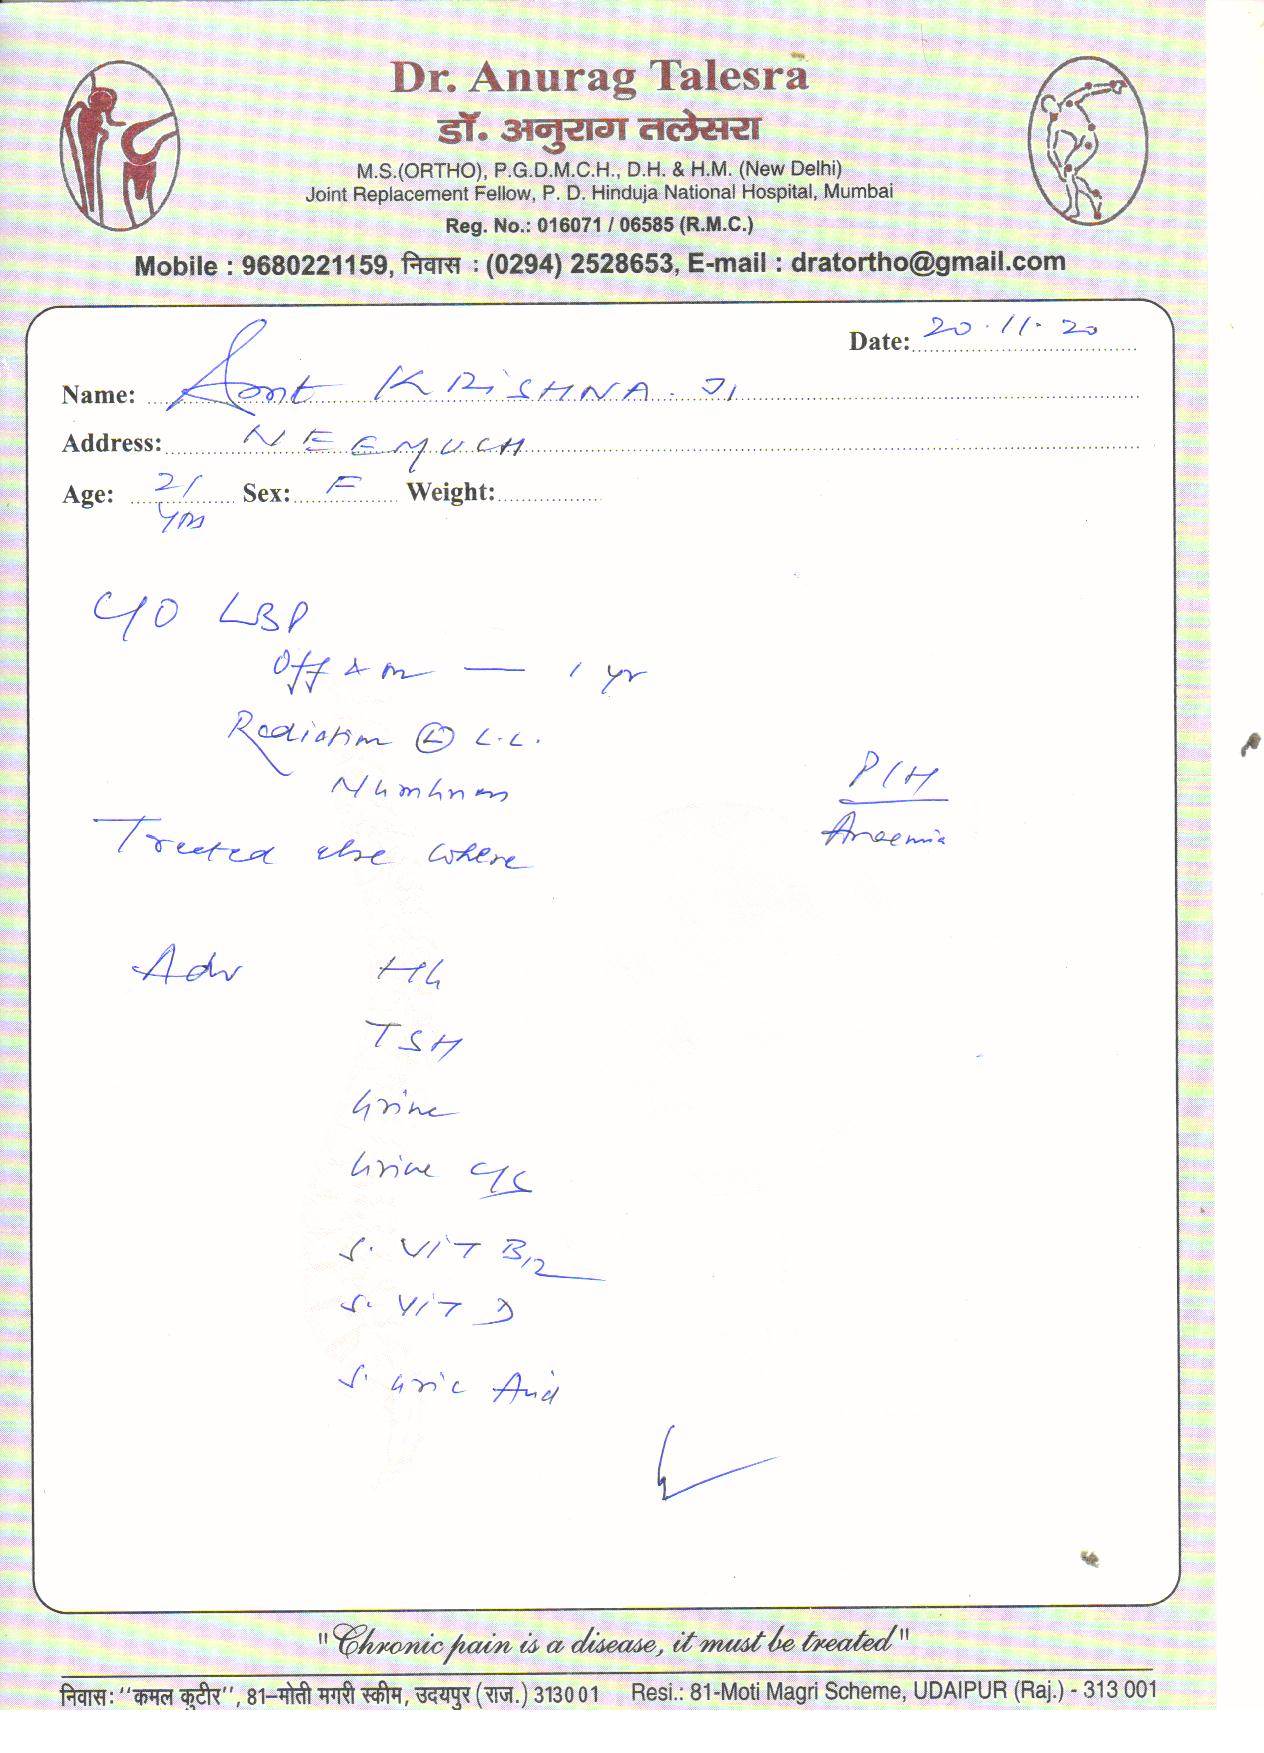 Dr. Anurag Talesra
डॉ. अनुराग तलेसरा
M.S.(ORTHO), P.G.D.M.C.H., D.H. & H.M. (New Delhi)
Joint Replacement Fellow, P. D. Hinduja National Hospital, Mumbai
Reg. No.: 016071 / 06585 (R.M.C.)
Mobile : 9680221159, निवास : (0294) 2528653, E-mail : dratortho@gmail.com
Date: 20.11.20
Name: Smt KRISHNA JI
Address: NEEMUCH
Age: 21 yrs Sex: F Weight:
C/O LBP
Off & on — 1 yr
Radiation Ⓛ L.L.
Numbness
P/H
Anaemia
Treated else where
Adv Hb
TSH
Urine
Urine C/S
S. VIT B12
S. VIT D
S. Uric Acid
"Chronic pain is a disease, it must be treated"
निवास: ''कमल कुटीर'', 81–मोती मगरी स्कीम, उदयपुर (राज.) 313001 Resi.: 81-Moti Magri Scheme, UDAIPUR (Raj.) - 313 001